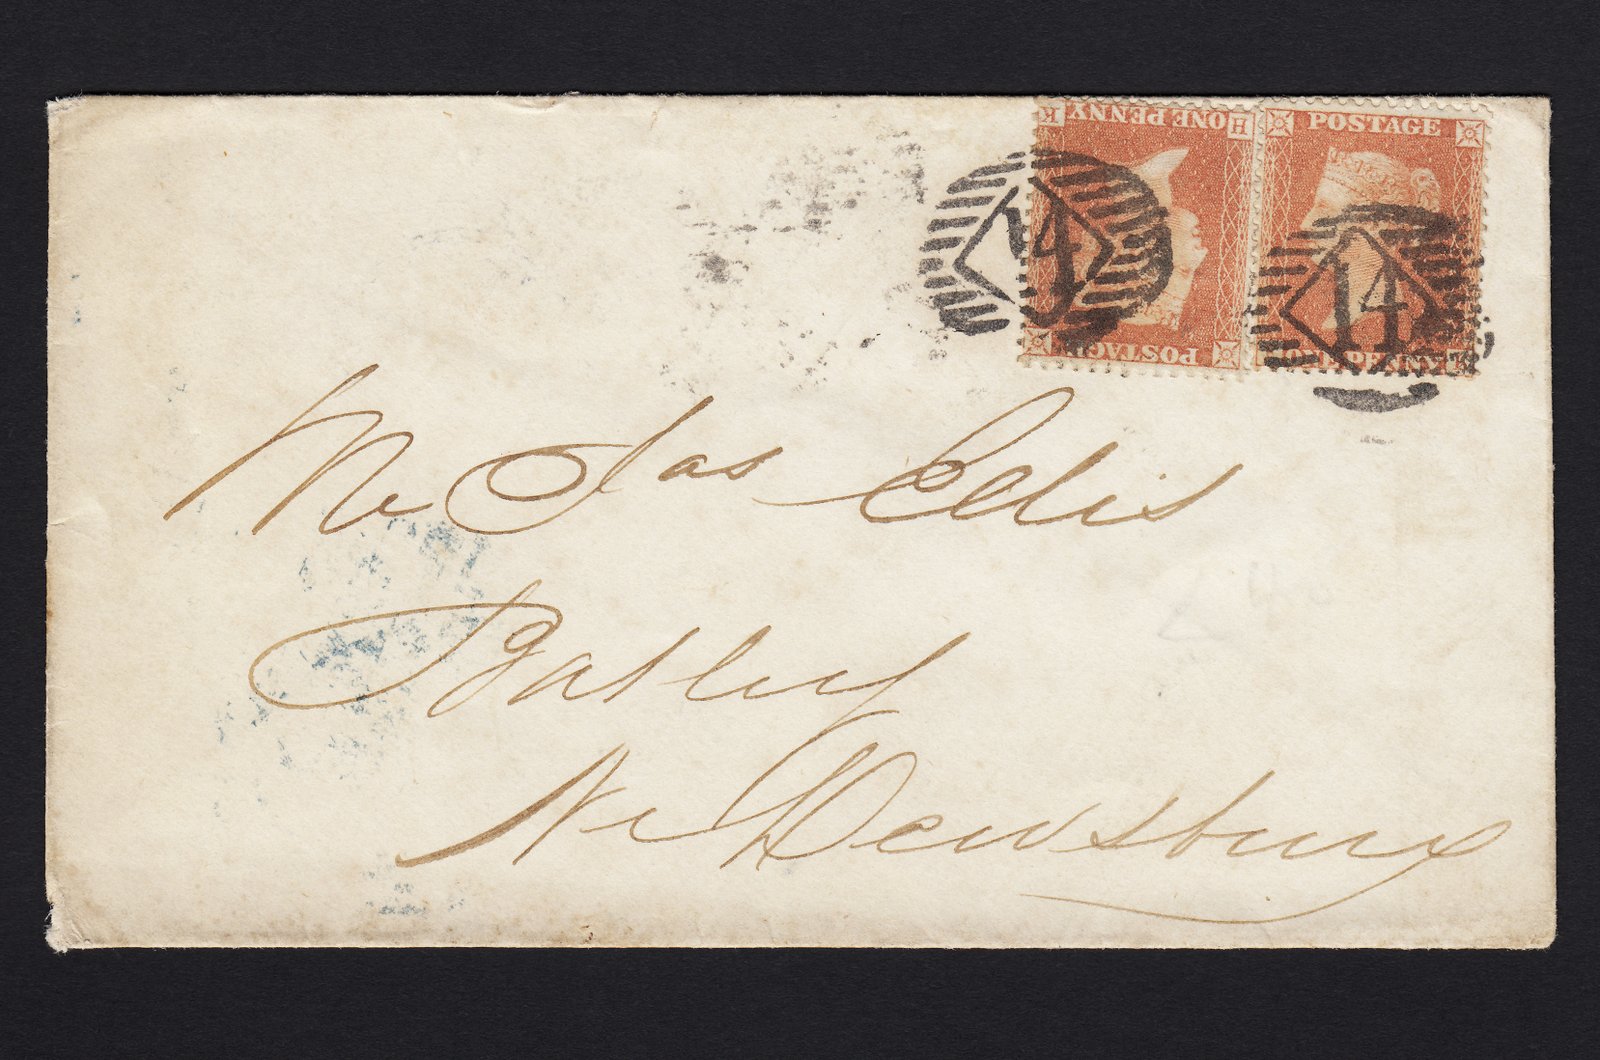 K ONE PENNY H
POSTAGE
POSTAGE
ONE PENNY
14
14
Mr Jas Edis
Batley
Nr Dewsbury